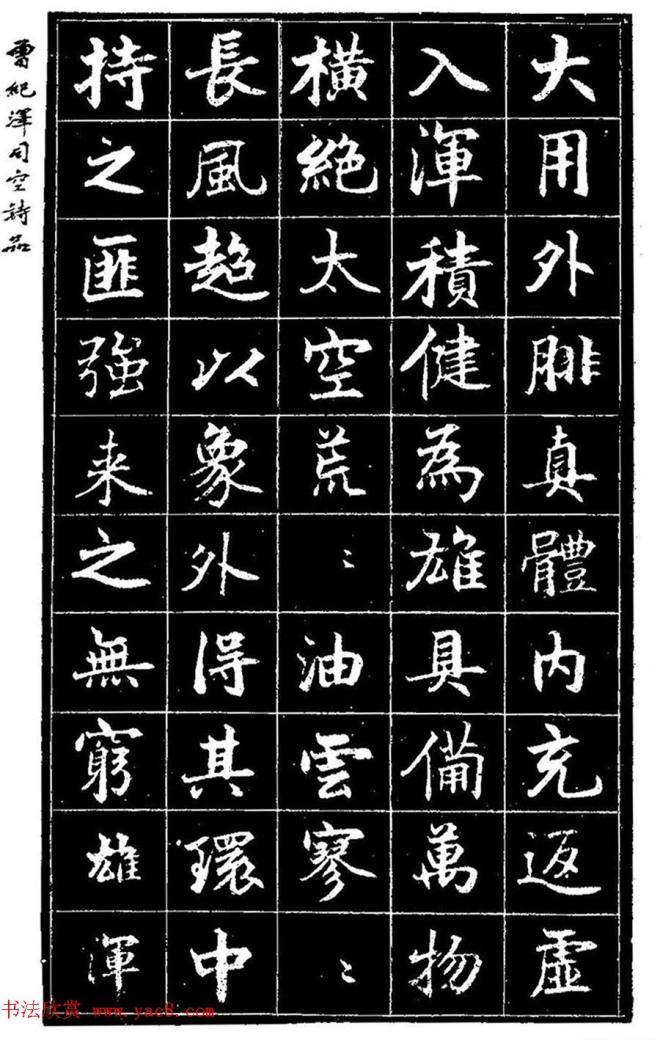 大用外腓真體内充返虛
入渾積健為雄具備萬物
橫絕太空荒〻油雲寥〻
長風超以象外得其環中
持之匪強来之無窮雄渾
曾紀澤司空詩品
书法欣赏 www.yac8.com